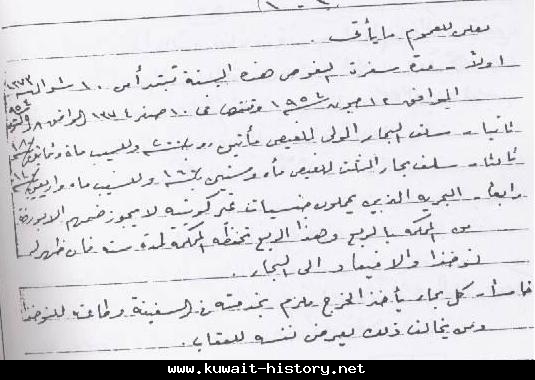 يعلن للعموم ما يأتي.
اولاً - مدة سفرة الغوص هذه السنة تبتدأ من ١٠ شوال ١٣٧٣
الموافق ١٢ جون ١٩٥٤ وتنتهي في ١٠ صفر ١٣٧٤ الموافق ٨
ثانيا - سلف البحار الولي للغيص مأتين روبية ٢٠٠ وللسيب ماة وثمانون
ثالثا - سلف بحار الثلث للغيص مأه وستين ١٦٠ وللسيب ماه واربعين
رابعاً - البحريه الذين يحملون جنسيات غير كويتيه لا يجوز ضمهم الا بورقة
من المحكمه بالربع وهذا الربع تحفظه المحكمه لمدة سنه فان ظهر له
نوخذا والا فيعاد الى البحار.
خامساً - كل بحار يأخذ الخرج ملزم بخدمته في السفينة وطاعته للنوخذا
ومن يخالف ذلك يعرض نفسه للعقاب.
www.kuwait-history.net